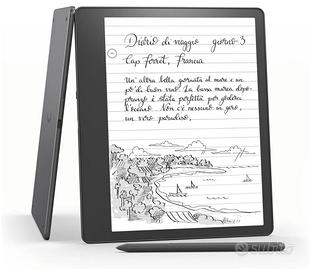 Diario di viaggio giorno 3
Cap Ferret, Francia
Un'altra bella giornata al mare e un
po' di buon vino. La bassa marea dopo-
pranzo è stata perfetta per godersi
l'oceano. Non c'è nessuno in giro,
un vero paradiso.
subito